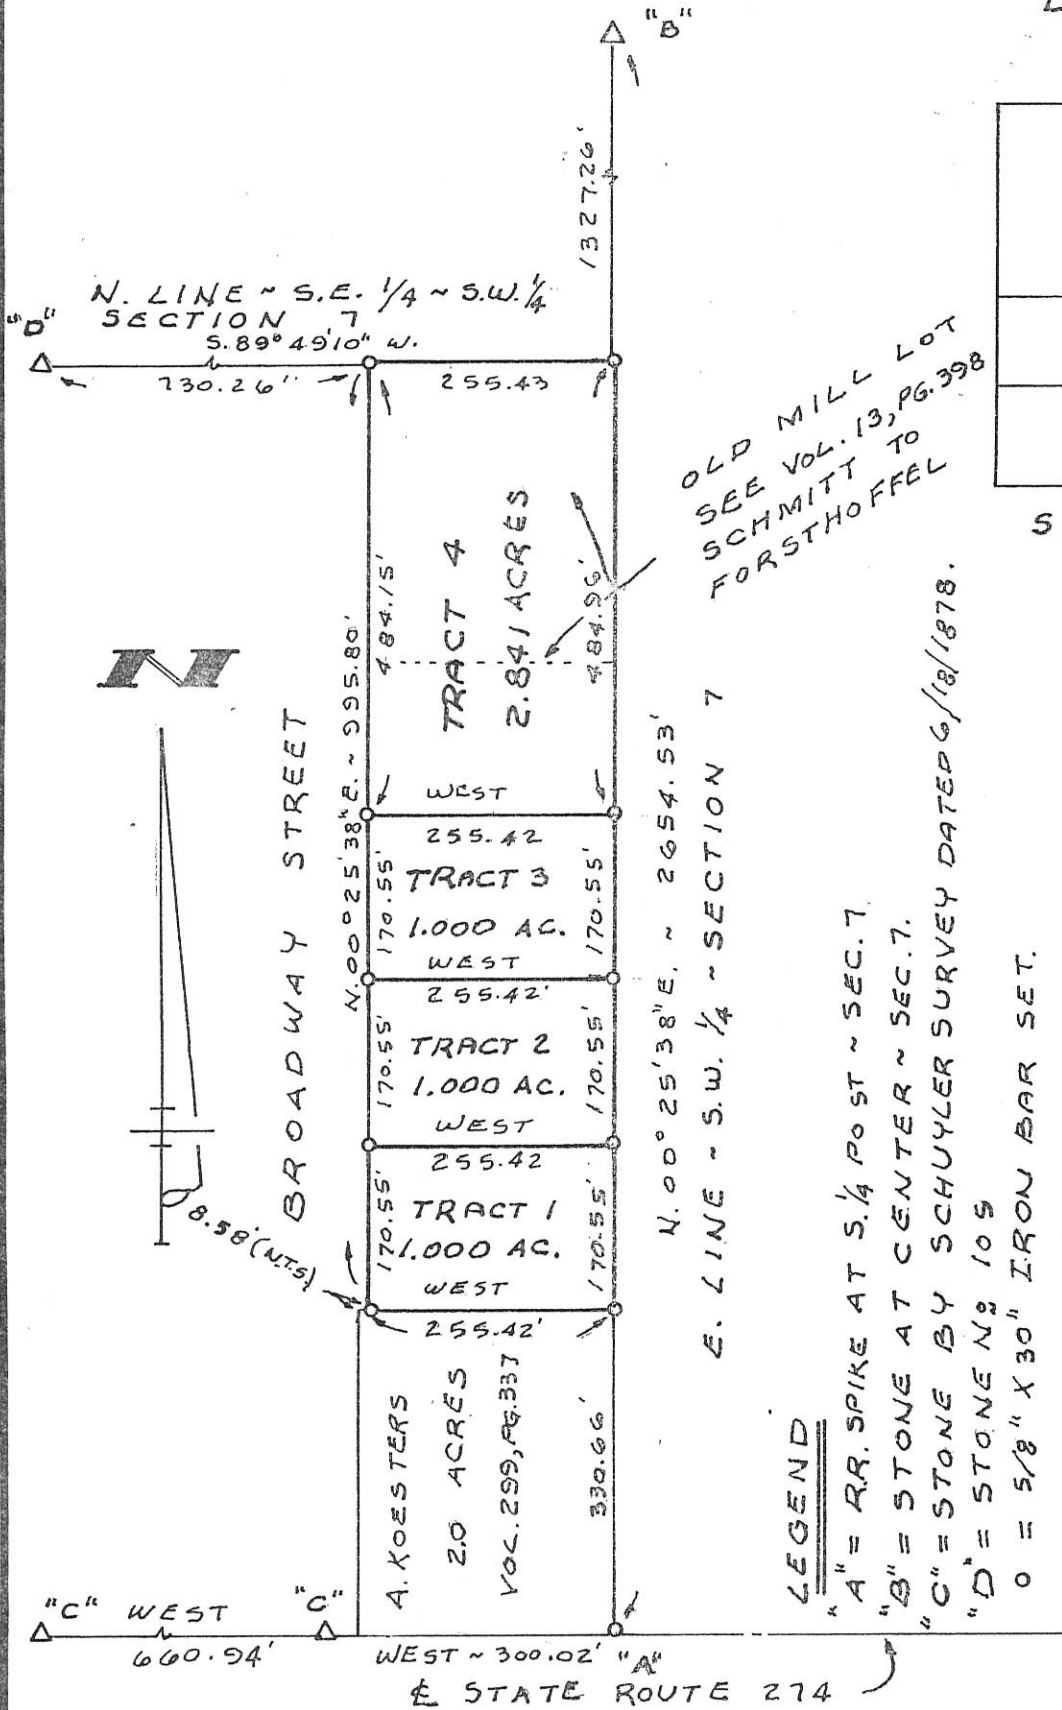 "B"
1327.26'
N. LINE ~ S.E. 1/4 ~ S.W. 1/4
SECTION 7
"D"
S. 89° 49' 10" W.
730.26"
255.43
OLD MILL LOT
SEE VOL. 13, PG. 398
SCHMITT TO
FORSTHOFFEL
S
N
BROADWAY STREET
N. 00° 25' 38" E. ~ 995.80'
484.15'
TRACT 4
2.841 ACRES
484.96'
WEST
255.42
170.55'
TRACT 3
1.000 AC.
170.55'
WEST
255.42'
170.55'
TRACT 2
1.000 AC.
170.55'
WEST
255.42
170.55'
TRACT 1
1.000 AC.
170.55'
WEST
255.42'
8.58' (N.T.S.)
N. 00° 25' 38" E. ~ 2654.53'
E. LINE ~ S.W. 1/4 ~ SECTION 7
A. KOESTERS
2.0 ACRES
VOL. 299, PG. 337
330.66'
LEGEND
"A" = R.R. SPIKE AT S. 1/4 POST ~ SEC. 7
"B" = STONE AT CENTER ~ SEC. 7.
"C" = STONE BY SCHUYLER SURVEY DATED 6/18/1878.
"D" = STONE Nº 105
O = 5/8" X 30" IRON BAR SET.
"C" WEST "C"
660.94'
WEST ~ 300.02' "A"
℄ STATE ROUTE 274